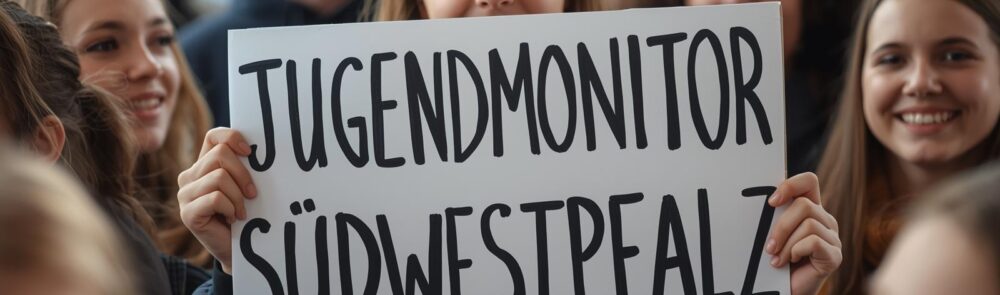 JUGENDMONITOR
SÜDWESTPFALZ